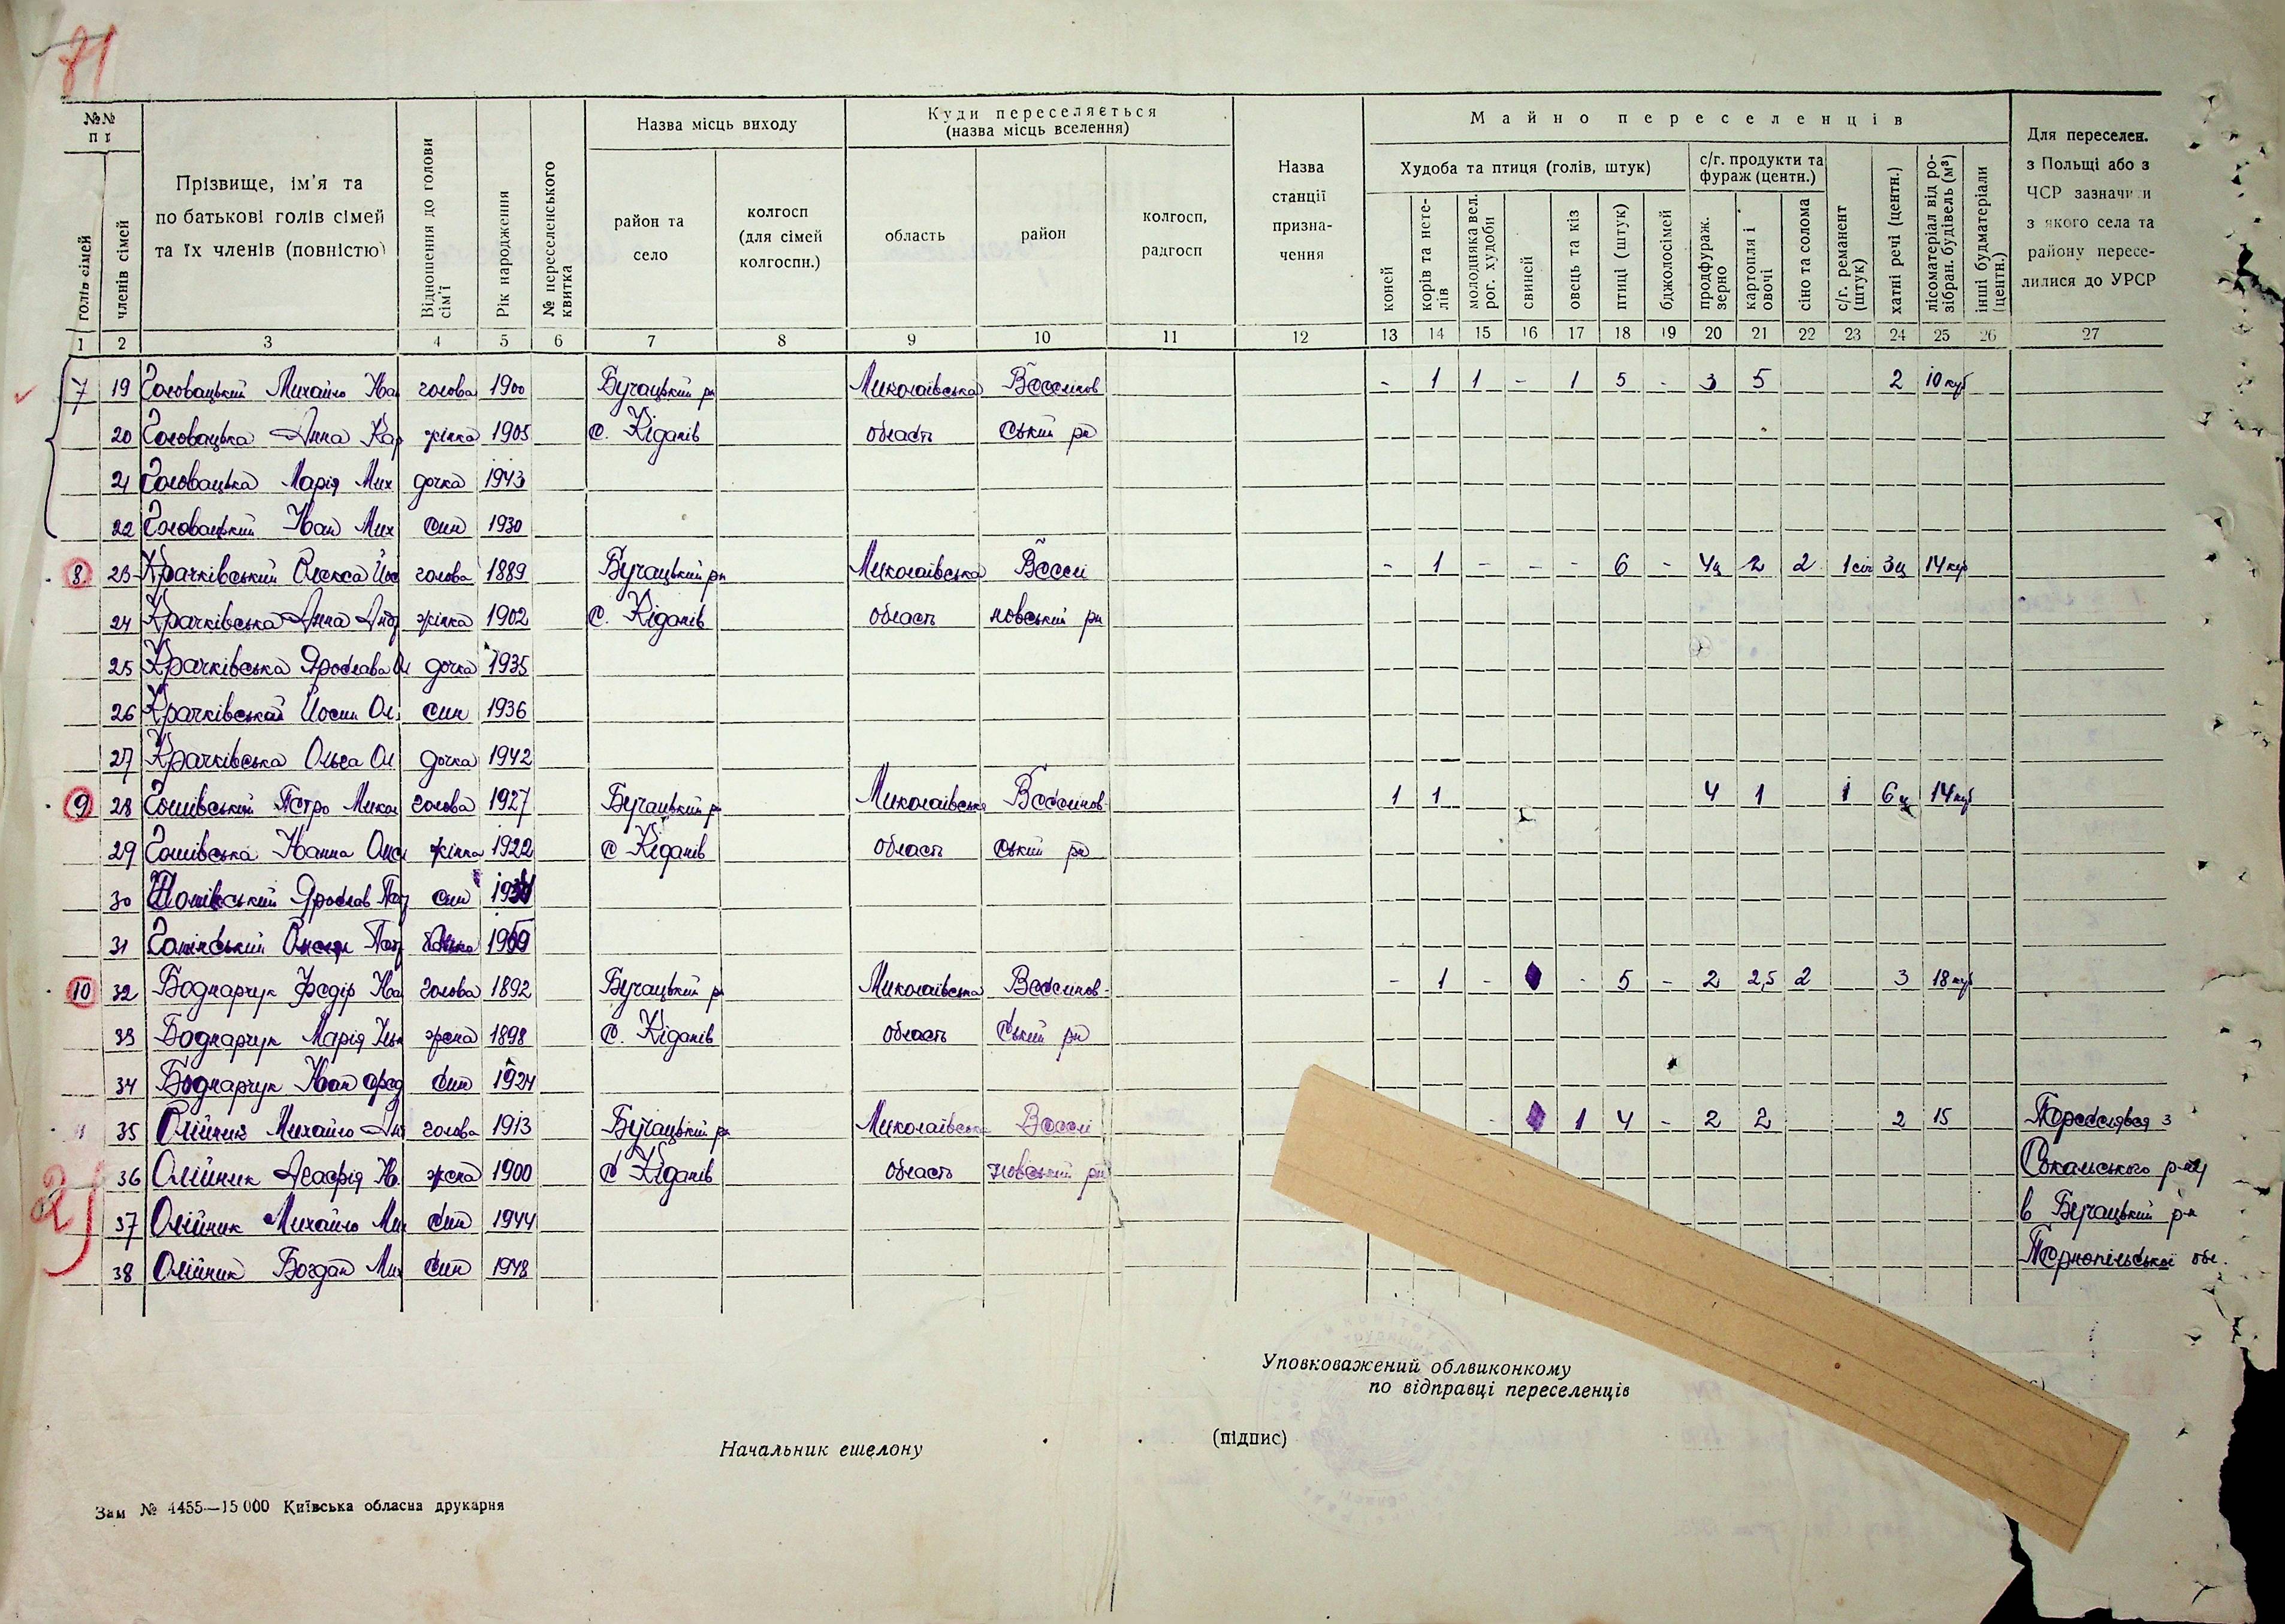 71
№№ п г
голів сімей
членів сімей
Прізвище, ім'я та по батькові голів сімей та їх членів (повністю)
Відношення до голови сім'ї
Рік народження
№ переселенського квитка
Назва місць виходу
район та село
колгосп (для сімей колгоспн.)
Куди переселяється (назва місць вселення)
область
район
колгосп, радгосп
Назва станції призна-чення
Майно переселенців
Худоба та птиця (голів, штук)
коней
корів та нете-лів
молодняка вел. рог. худоби
свиней
овець та кіз
птиці (штук)
бджолосімей
с/г. продукти та фураж (центн.)
продфураж. зерно
картопля і овочі
сіно та солома
с/г. реманент (штук)
хатні речі (центн.)
лісоматеріал від ро-зібран. будівель (м³)
інші будматеріали (центн.)
Для переселен. з Польщі або з ЧСР зазначити з якого села та району пересе-лилися до УРСР
1 2 3 4 5 6 7 8 9 10 11 12 13 14 15 16 17 18 19 20 21 22 23 24 25 26 27
7 19 Головацький Михайло Іва голова 1900 Бучацький рн Миколаївська Веселинов - 1 1 - 1 5 - 3 5 2 10 куб
20 Головацька Анна Кар жінка 1905 с. Кіданів область ський рн
21 Головацька Марія Мих дочка 1943
22 Головацький Іван Мих син 1930
8 23 Крачківський Олекса Йос голова 1889 Бучацький рн Миколаївська Весели - 1 - - - 6 - 4ц 2 2 1 січ 3ц 14 куб
24 Крачківська Анна Андр жінка 1902 с. Кіданів область новський рн
25 Крачківська Ярослава Ол дочка 1935
26 Крачківський Йосип Ол. син 1936
27 Крачківська Ольга Ол дочка 1942
9 28 Гошівський Петро Микол голова 1927 Бучацький рн Миколаївська Веселинов- 1 1 4 1 1 6ц 14 куб
29 Гошівська Іванна Олек жінка 1922 с Кіданів область ський рн
30 Гошівський Ярослав Пет син
31 Гошівський Пет 19
10 32 Боднарчук Федір Іва голова 1892 Бучацький р Миколаївська Веселинов- - 1 - - 5 - 2 2,5 2 3 18 куб
33 Боднарчук Марія Ільк жена 1898 с. Кіданів область ський рн
34 Боднарчук Іван Фед син 1924
11 35 Олійник Михайло Ан голова 1913 Бучацький рн Миколаївська Весели - 1 4 - 2 2 2 15 Переселявся з
36 Олійник Агафія Ів. жена 1900 с Кіданів область новський рн Сокальського р-ну
37 Олійник Михайло Мих син 1944 в Бучацький р-н
38 Олійник Богдан Мих син 1948 Тернопільської обл.
2
Уповковажений облвиконкому
по відправці переселенців
Начальник ешелону
(підпис)
Зам № 4455—15 000 Київська обласна друкарня